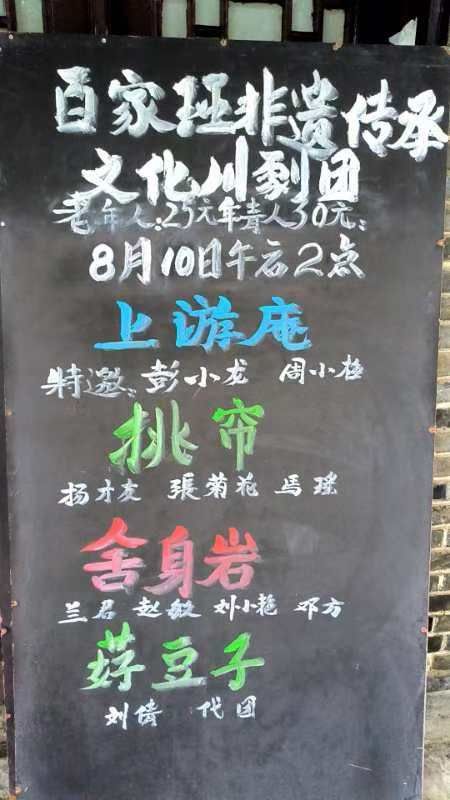 百家班非遗传承
文化川剧团
老年人:25元年青人30元:
8月10日午后2点
上游庵
特邀:彭小龙 周小桂
挑帘
扬才友 張菊花 馬瑶
舍身岩
兰君 赵敏 刘小艳 邓方
荨豆子
刘倩 代团